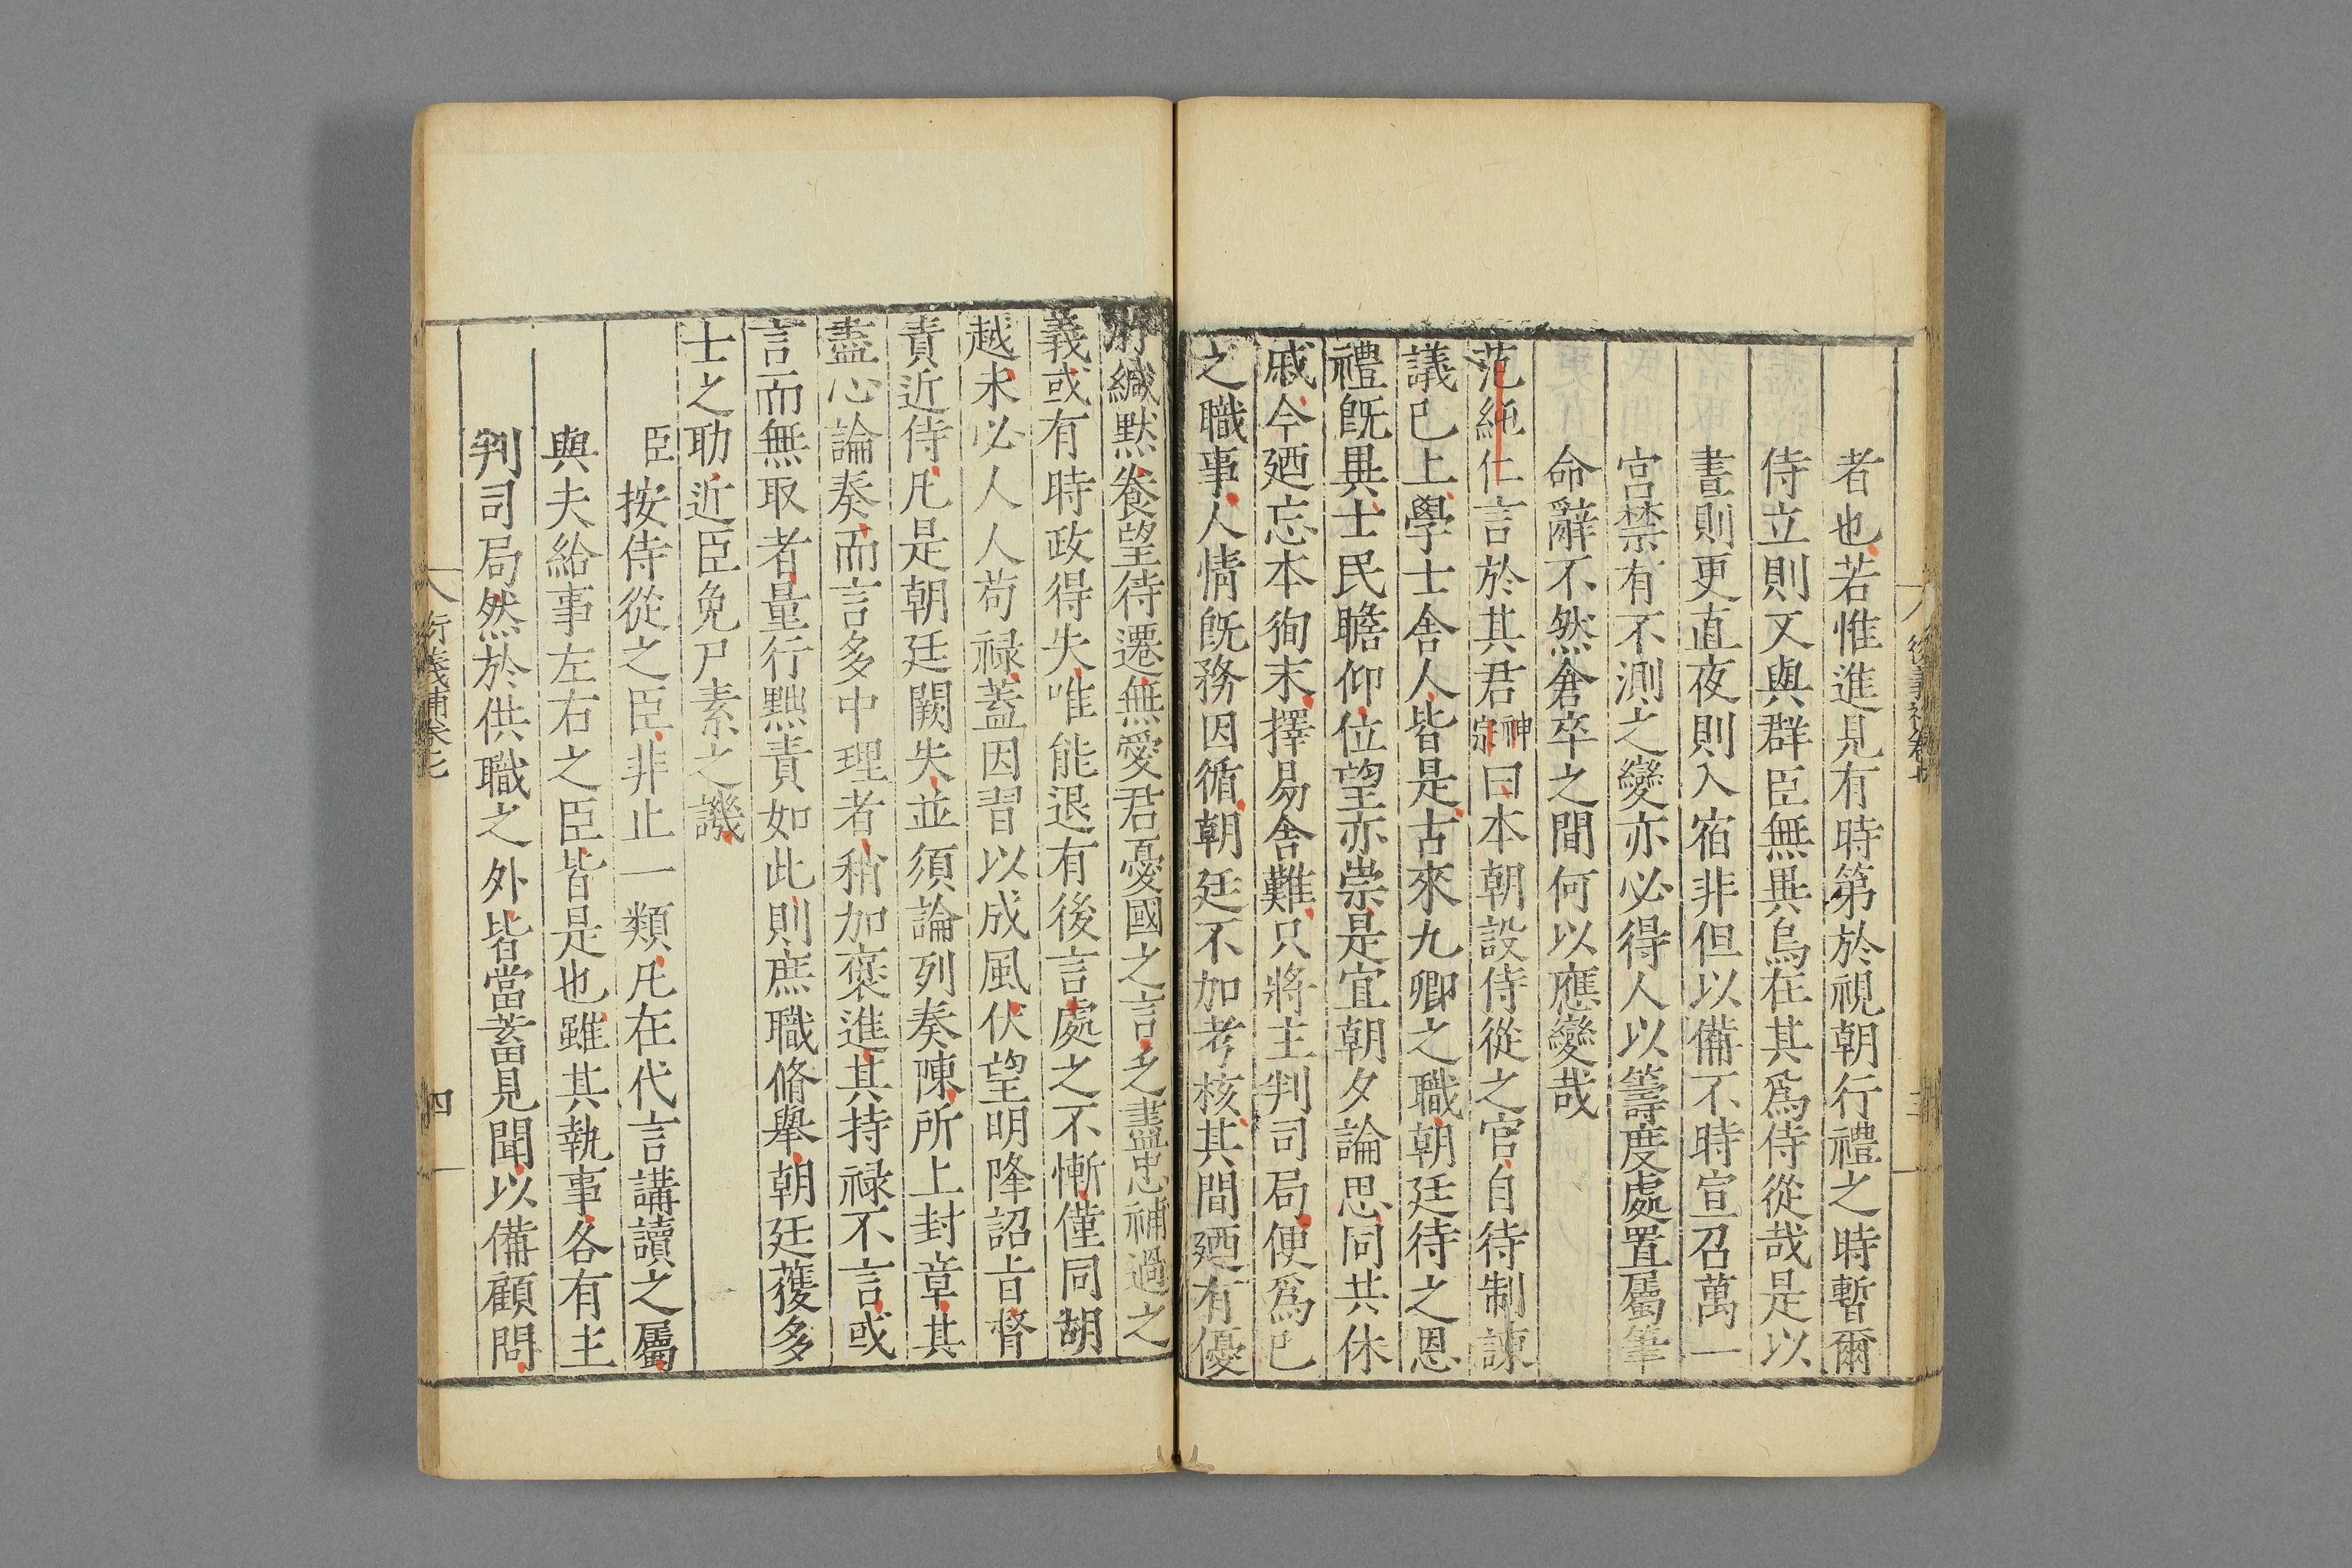 者也若惟進見有時第於視朝行禮之時暫爾
侍立則又與群臣無異烏在其爲侍從哉是以
晝則更直夜則入宿非但以備不時宣召萬一
宮禁有不測之變亦必得人以籌度處置屬筆
命辭不然倉卒之間何以應變哉
范純仁言於其君神宗曰本朝設侍從之官自待制諫
議已上學士舍人皆是古來九卿之職朝廷待之恩
禮旣異士民瞻仰位望亦崇是宜朝夕論思同共休
戚今廼忘本徇末擇易舍難只將主判司局便爲已
之職事人情旣務因循朝廷不加考核其間廼有優
游緘默養望待遷無愛君憂國之言乏盡忠補過之
義或有時政得失唯能退有後言處之不慚僅同胡
越未必人人苟祿蓋因習以成風伏望明降詔旨督
責近侍凡是朝廷闕失並須論列奏陳所上封章其
盡心論奏而言多中理者稍加褒進其持祿不言或
言而無取者量行黜責如此則庶職脩舉朝廷獲多
士之助近臣免尸素之譏
臣按侍從之臣非止一類凡在代言講讀之屬
與夫給事左右之臣皆是也雖其執事各有主
判司局然於供職之外皆當蓄見聞以備顧問
衍義補卷七
四